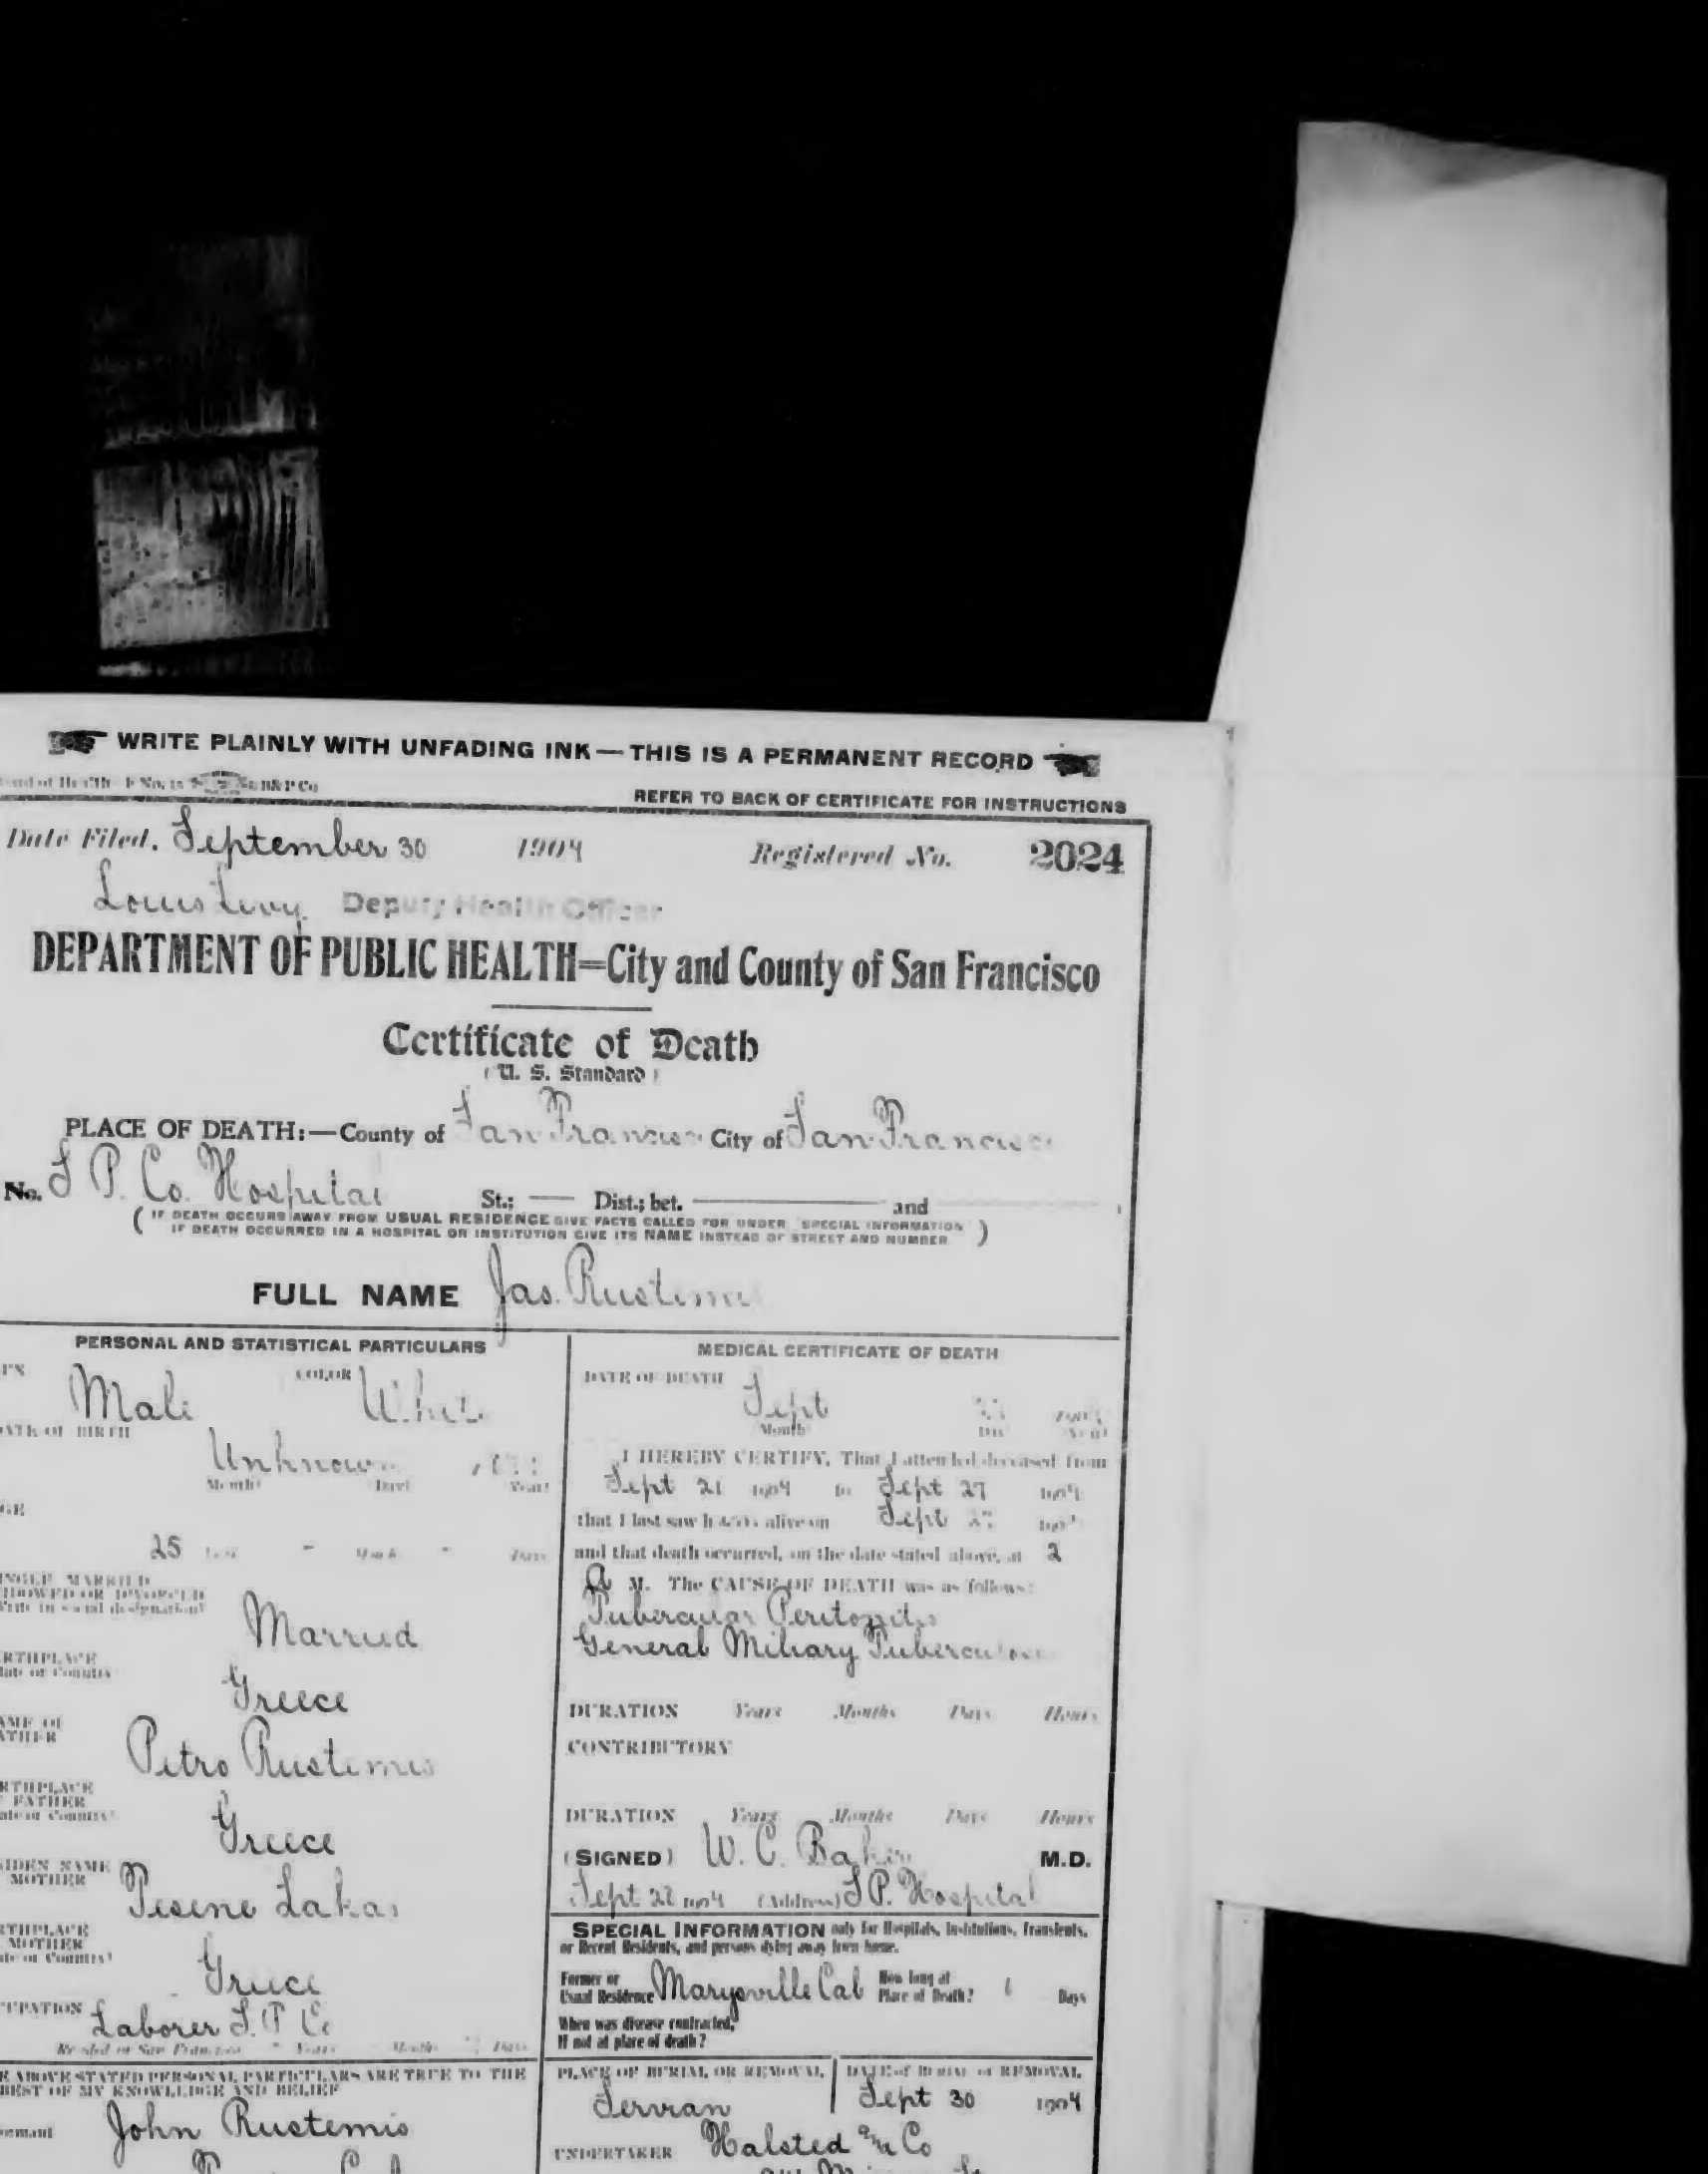 WRITE PLAINLY WITH UNFADING INK — THIS IS A PERMANENT RECORD
REFER TO BACK OF CERTIFICATE FOR INSTRUCTIONS
Date Filed. September 30 1904 Registered No. 2024
Louis Levy. Deputy Health Officer
DEPARTMENT OF PUBLIC HEALTH=City and County of San Francisco
Certificate of Death
(U. S. Standard)
PLACE OF DEATH:—County of San Francisco City of San Francisco
No. S P. Co. Hospital St.; — Dist.; bet. — and
( IF DEATH OCCURS AWAY FROM USUAL RESIDENCE GIVE FACTS CALLED FOR UNDER "SPECIAL INFORMATION"
IF DEATH OCCURRED IN A HOSPITAL OR INSTITUTION GIVE ITS NAME INSTEAD OF STREET AND NUMBER )
FULL NAME Jas. Rustemis
PERSONAL AND STATISTICAL PARTICULARS
COLOR
Male White
ATE OF BIRTH
Unknown
Month Day Year
GE
25 Years - Months - Days
INGLE MARRIED
IDOWED OR DIVORCED
Write in social designation)
Married
RTHPLACE
tate or Country
Greece
AME OF
ATHER
Petro Rustemis
RTHPLACE
FATHER
ate or Country)
Greece
IDEN NAME
MOTHER
Pesene Lakas
RTHPLACE
MOTHER
te or Country)
Greece
CUPATION
Laborer S. P. Co
Resided in San Francisco Years Months Days
E ABOVE STATED PERSONAL PARTICULARS ARE TRUE TO THE
BEST OF MY KNOWLEDGE AND BELIEF
ormant John Rustemis
MEDICAL CERTIFICATE OF DEATH
DATE OF DEATH
Sept
Month Day Year
I HEREBY CERTIFY, That I attended deceased from
Sept 21 1904 to Sept 27 1904
that I last saw h alive on Sept 27 1904
and that death occurred, on the date stated above, at 2
A M. The CAUSE OF DEATH was as follows:
Tubercular Peritonitis
General Miliary Tuberculosis
DURATION Years Months Days Hours
CONTRIBUTORY
DURATION Years Months Days Hours
(SIGNED) W. C. Baker M.D.
Sept 28 1904 (Address) S P. Hospital
SPECIAL INFORMATION only for Hospitals, Institutions, Transients,
or Recent Residents, and persons dying away from home.
Former or
Usual Residence Marysville Cal How long at
Place of Death? Days
When was disease contracted,
If not at place of death?
PLACE OF BURIAL OR REMOVAL
Servian
DATE of BURIAL or REMOVAL
Sept 30 1904
UNDERTAKER Halsted & Co